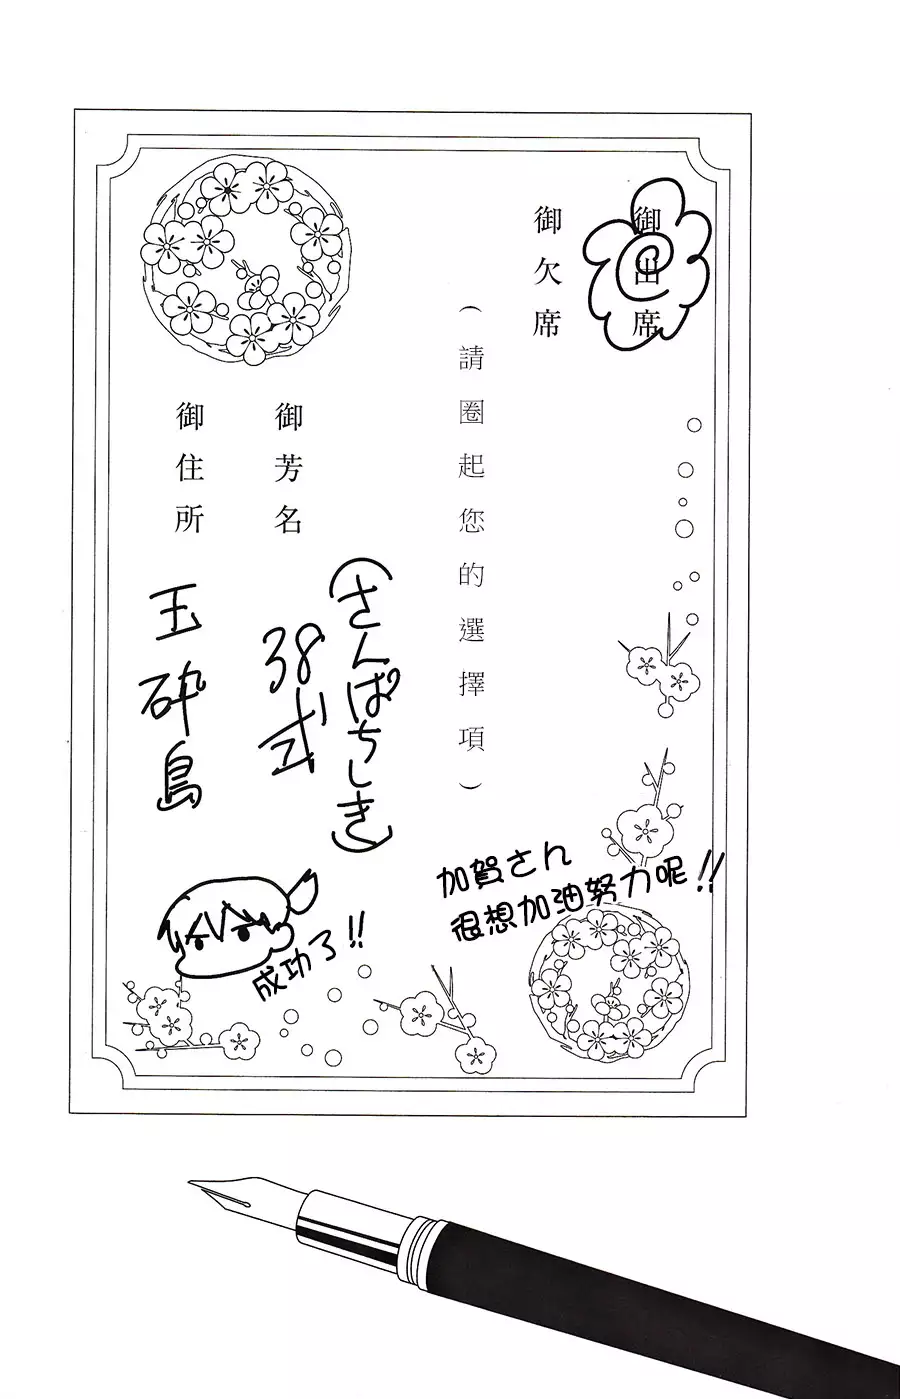 御出席
御欠席
（請圈起您的選擇項）
御芳名
(さんぱちしき)
38式
御住所
玉砕島
加賀さん
很想加油努力呢!!
成功了!!